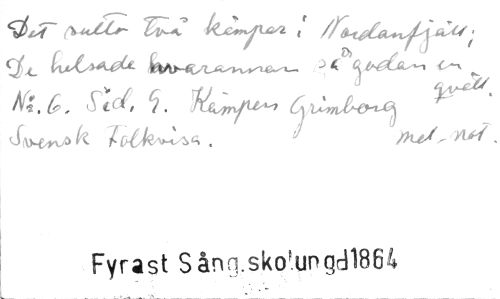 Det sutto två kämpar i Nordanfjäll;
De helsade hvarannan så godan en
qväll.
No. 6. Sid. 9. Kämpen Grimborg
Svensk Folkvisa. mel-not.
Fyrast Sång.skolungd1864